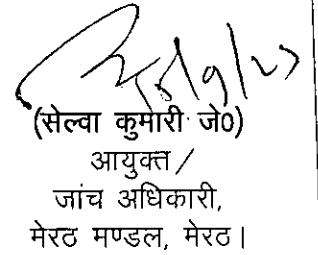 (सेल्वा कुमारी जे0)
आयुक्त/
जांच अधिकारी,
मेरठ मण्डल, मेरठ।